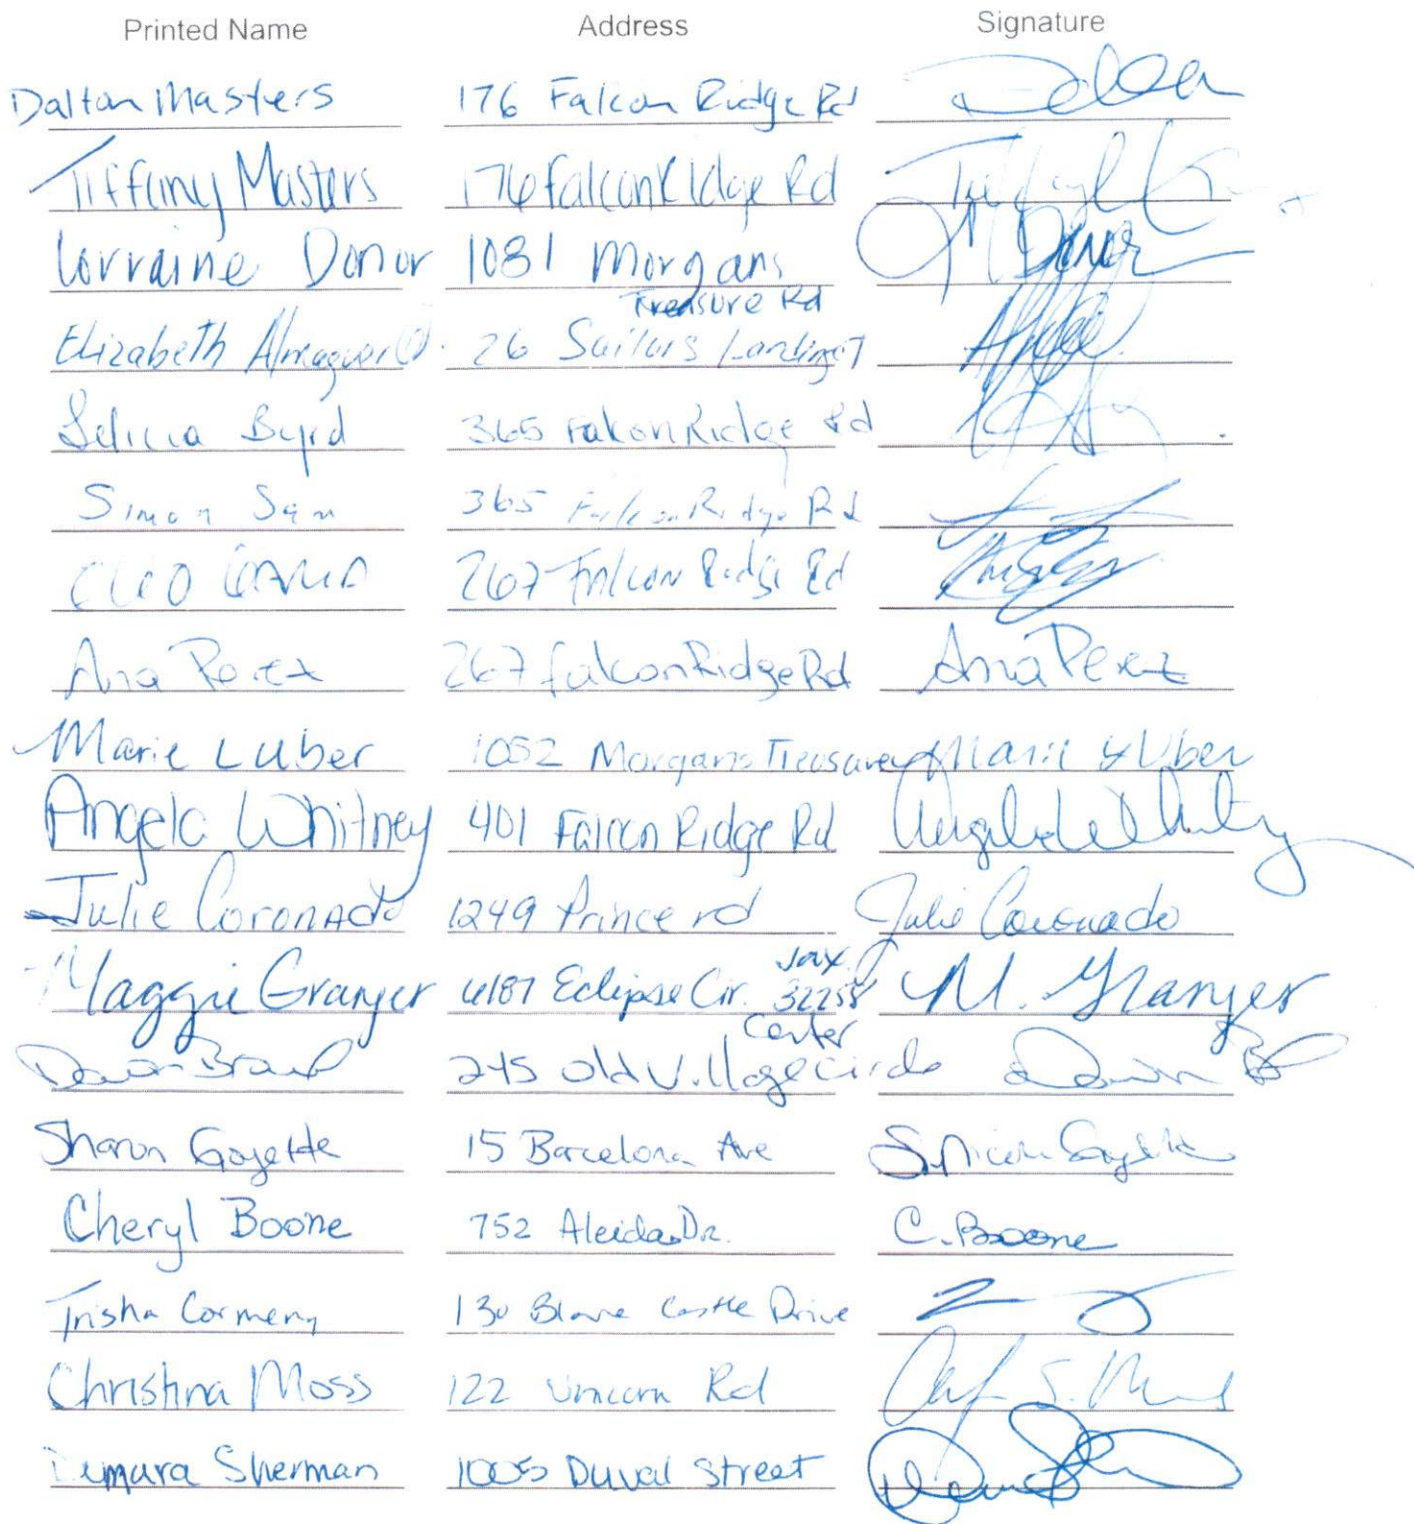 Printed Name Address Signature
Dalton Masters 176 Falcon Ridge Rd
Tiffany Masters 176 Falcon Ridge Rd
Lorraine Donor 1081 Morgans Donor
Treasure Rd
Elizabeth 26 Sailors Landing
Byrd 365 Falcon Ridge Rd
Simon Sam 365 Falcon Ridge Rd
267 Falcon Ridge Rd
Ana Perez 267 falcon Ridge Rd Ana Perez
Marie Luber 1052 Morgans Treasure Marie Luber
Angela Whitney 401 Falcon Ridge Rd Angela Whitney
Julie Coronado 1249 Prince rd Julie Coronado
Jax.
Maggie Granger 6187 Eclipse Cir. 32258 M. Granger
Center
245 Old Village Circle
Sharon Goyette 15 Barcelona Ave S. Nicole Goyette
Cheryl Boone 752 Aleida Dr. C. Boone
Trisha Cormeny 130 Castle Drive
Christina Moss 122 Unicorn Rd
Demara Sherman 1005 Duval Street